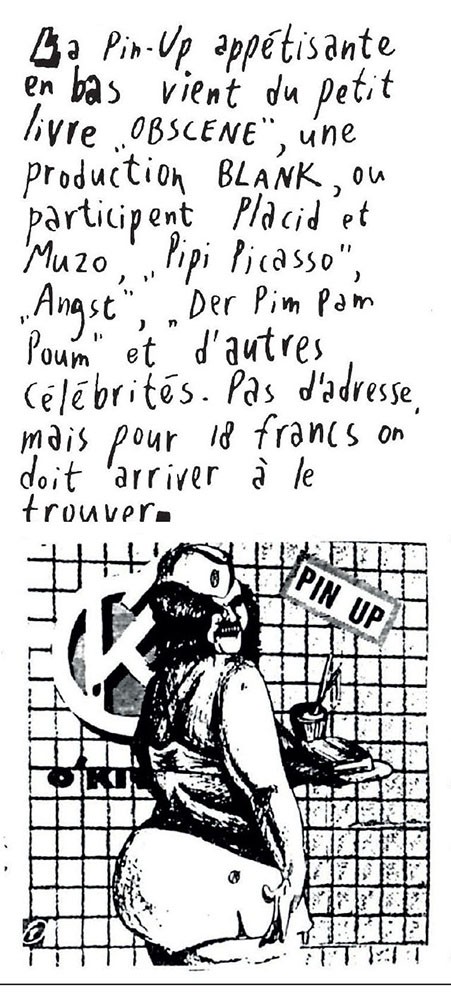 La Pin-Up appétisante
en bas vient du petit
livre „OBSCENE", une
production BLANK, ou
participent Placid et
Muzo, „Pipi Picasso",
„Angst", „Der Pim Pam
Poum" et d'autres
célébrités. Pas d'adresse,
mais pour 18 francs on
doit arriver à le
trouver.
PIN UP
K
O'KI